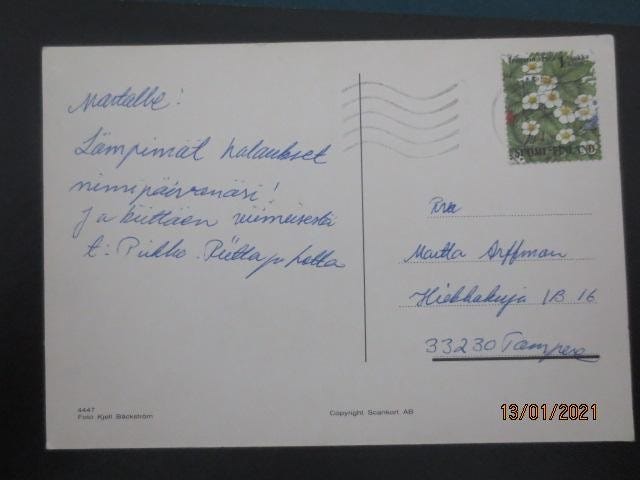 Martalle!
Lämpimät halaukset
nimipäivänäsi!
ja kiittäen viimeisestä
t: Pirkko. Riitta ja Lotta
1
SUOMI-FINLAND
Rva
Martta Arffman
Hiekkakuja 1B 16
33230 Tampere
4447
Foto Kjell Bäckström
Copyright Scankort AB
13/01/2021